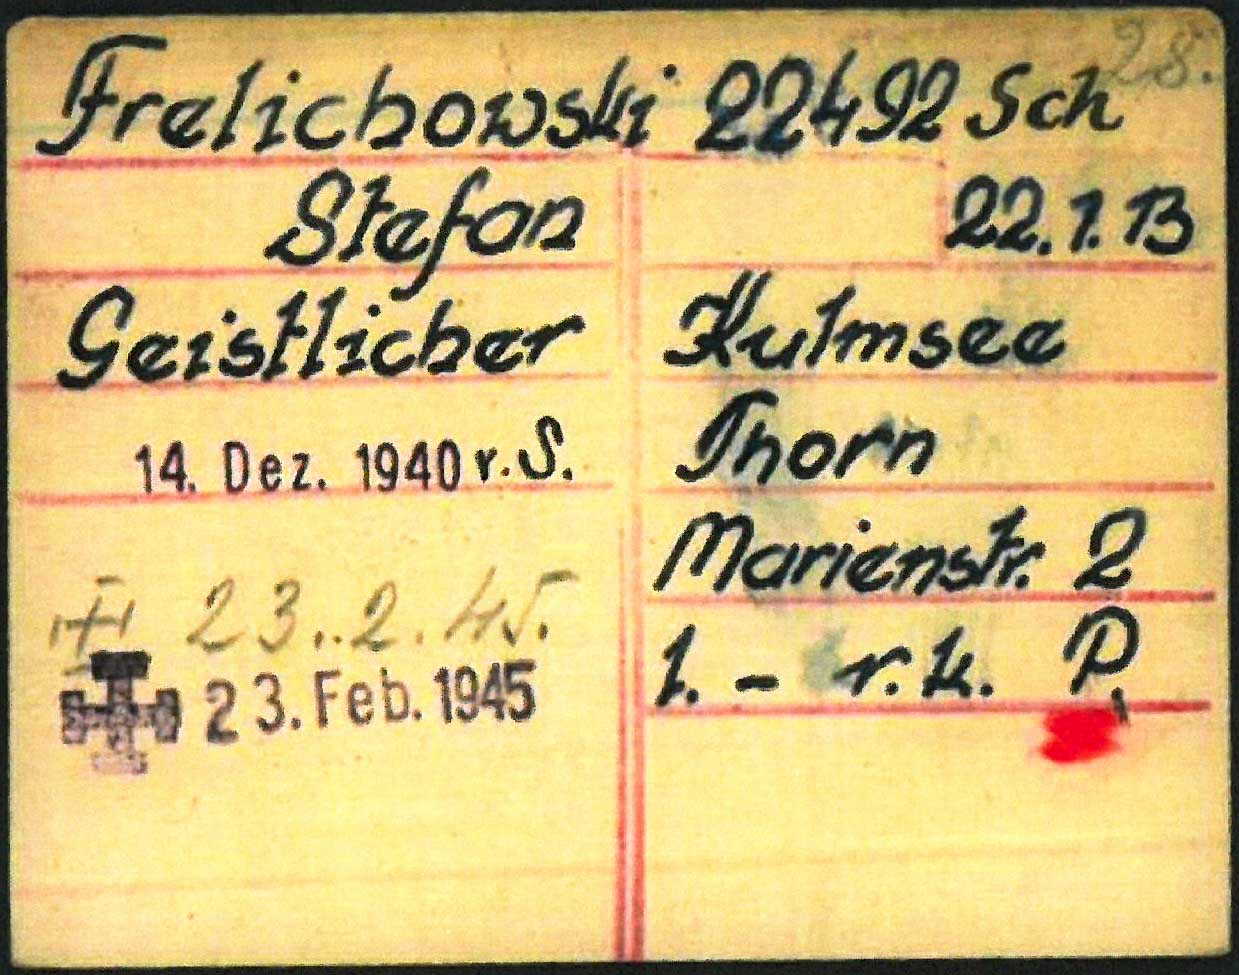 28.
Frelichowski 22492 Sch
Stefan 22.1.13
Geistlicher Kulmsee
14. Dez. 1940 v. S. Thorn
Marienstr. 2
23.2.45. 1. - r.k. P.
23. Feb. 1945